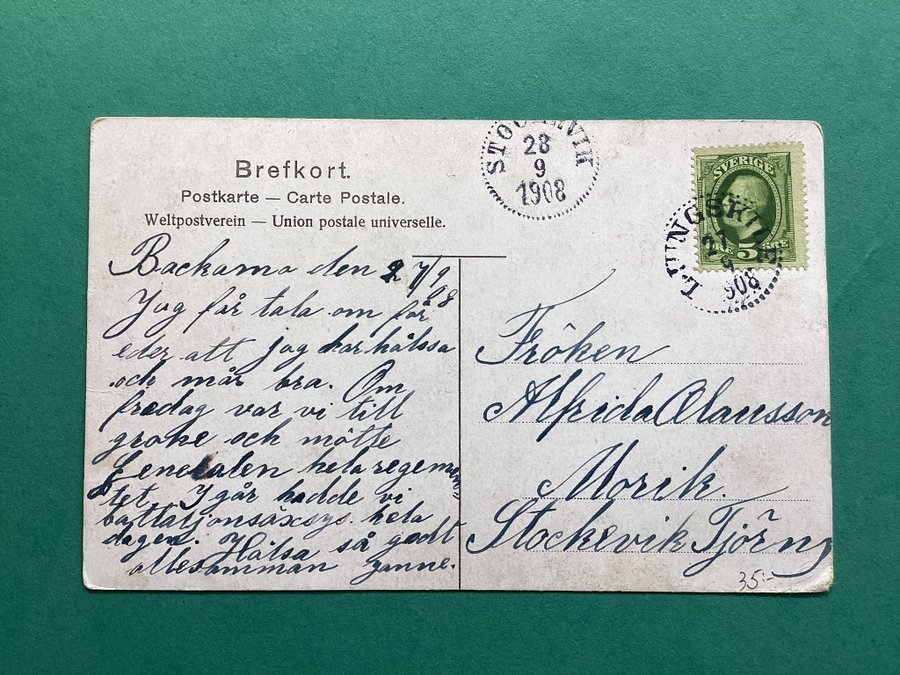 Brefkort.
Postkarte — Carte Postale.
Weltpostverein — Union postale universelle.
STOCKEVIK
28
9
1908
SVERIGE
5 ÖRE
LJUNGSKILE
27
9
1908
Backamo den 27/9
08
Jag får tala om för
eder att jag har hälsa
och mår bra. Om
fredag var vi till
och mötte
Generalen hela regemen
tet. I går hadde vi
hela
dagen. Hälsa så godt
allesamman Janne.
Fröken
Alfrida Olausson
Morik.
Stockevik Tjörn
35:-